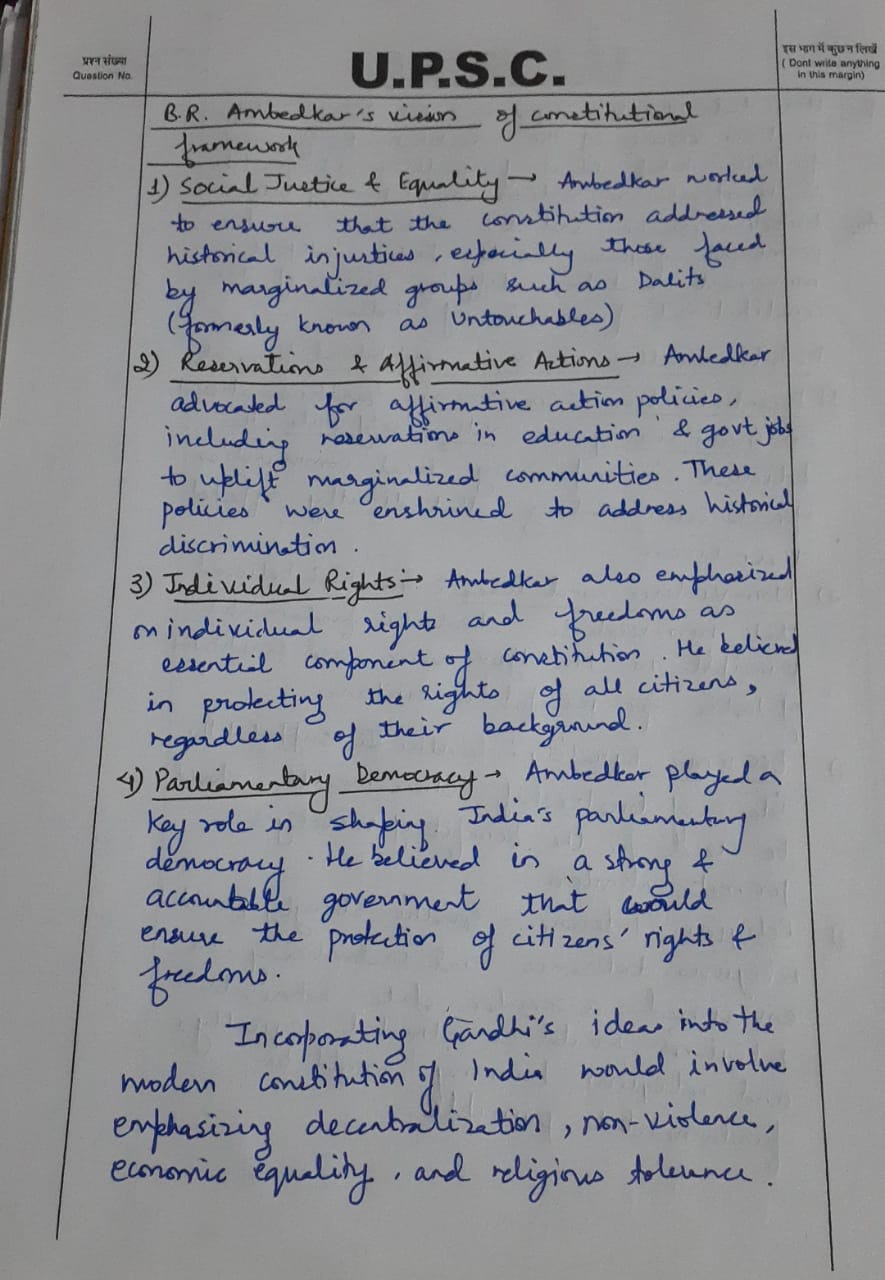 प्रश्न संख्या
Question No.
U.P.S.C.
इस भाग में कुछ न लिखें
( Dont write anything
in this margin)
B.R. Ambedkar's vision of constitutional
framework
1) Social Justice & Equality → Ambedkar worked
to ensure that the constitution addressed
historical injustices, especially those faced
by marginalized groups such as Dalits
(formerly known as Untouchables)
2) Reservations & Affirmative Actions → Ambedkar
advocated for affirmative action policies,
including reservations in education & govt jobs
to uplift marginalized communities. These
policies were enshrined to address historical
discrimination.
3) Individual Rights :→ Ambedkar also emphasized
on individual rights and freedoms as
essential component of constitution. He believed
in protecting the rights of all citizens,
regardless of their background.
4) Parliamentary Democracy → Ambedkar played a
key role in shaping India's parliamentary
democracy. He believed in a strong &
accountable government that would
ensure the protection of citizens' rights &
freedoms.
Incorporating Gandhi's ideas into the
modern constitution of India would involve
emphasizing decentralization, non-violence,
economic equality, and religious tolerance.